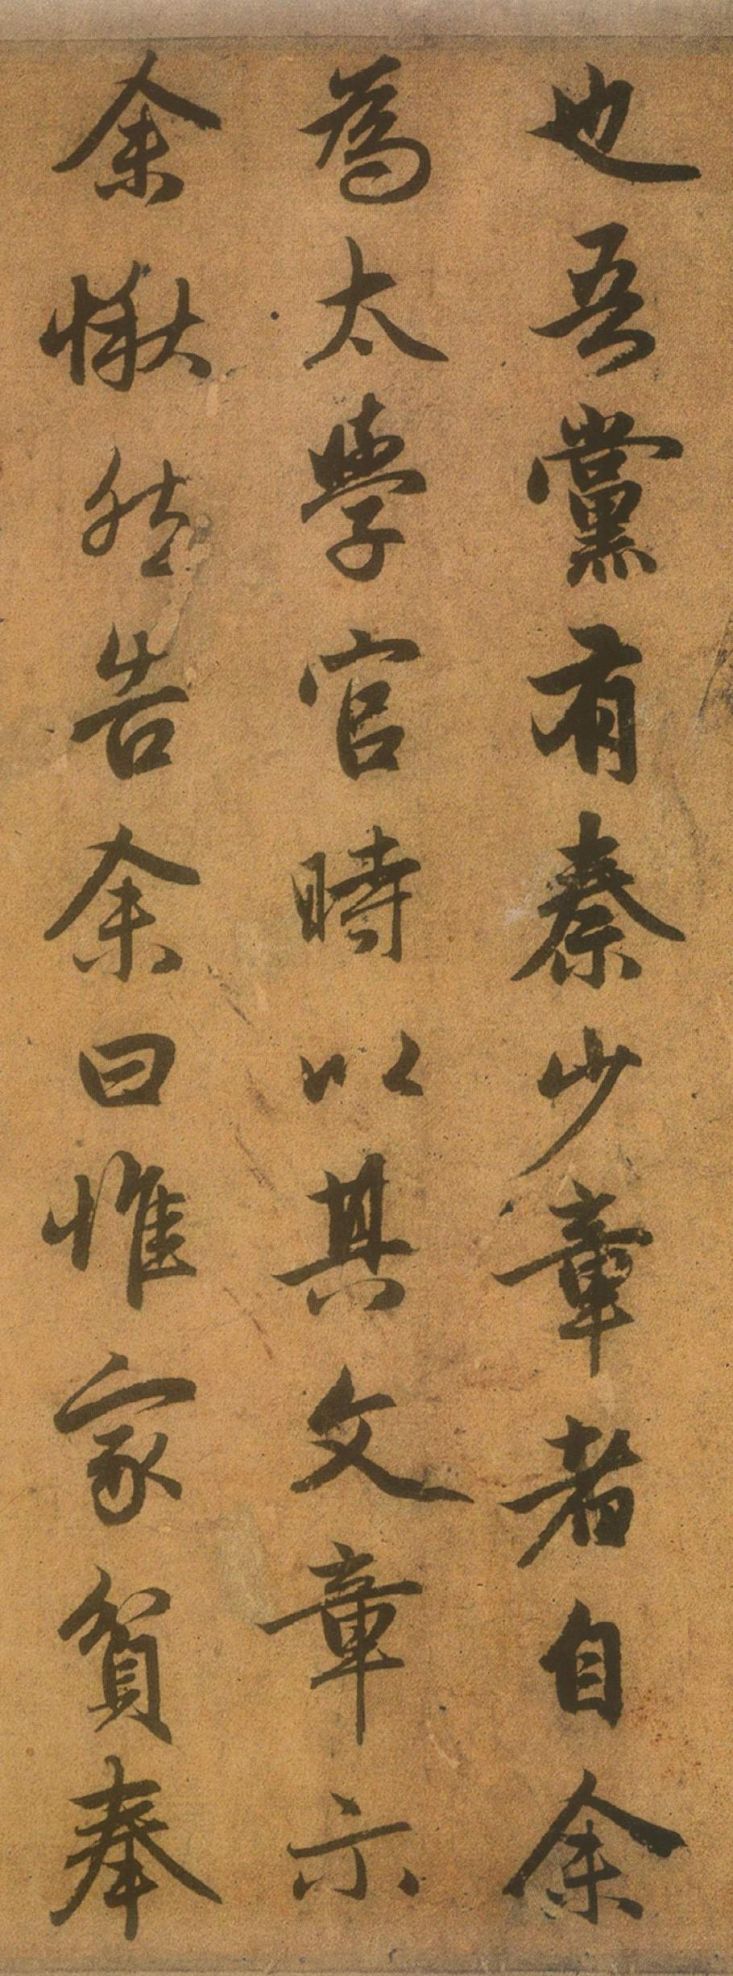 也吾黨有秦少章者自余
為太學官時以其文章示
余愀然告余曰惟家貧奉